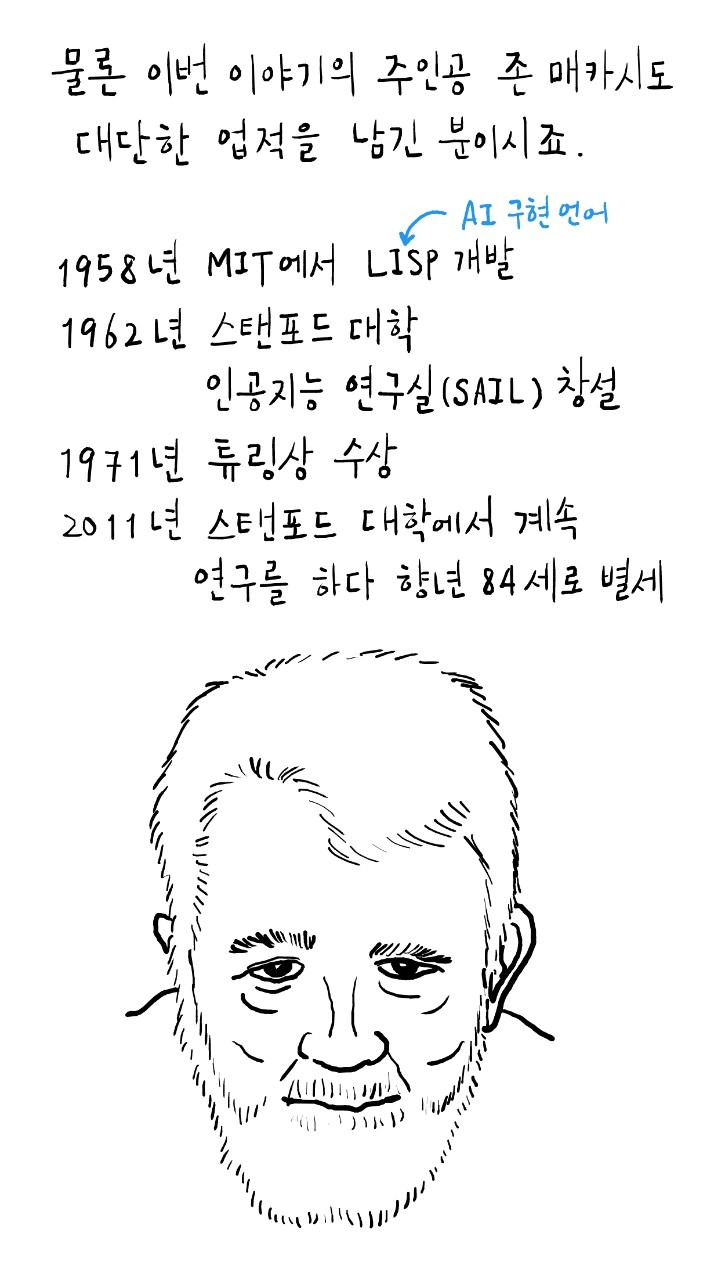 물론 이번 이야기의 주인공 존 매카시도
대단한 업적을 남긴 분이시죠.
AI 구현 언어
1958년 MIT에서 LISP 개발
1962년 스탠포드 대학
인공지능 연구실(SAIL) 창설
1971년 튜링상 수상
2011년 스탠포드 대학에서 계속
연구를 하다 향년 84세로 별세